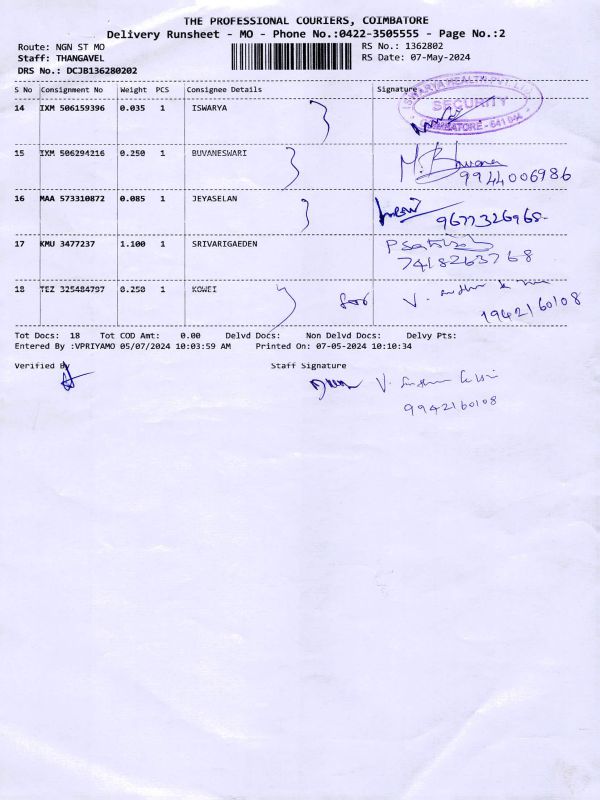 THE PROFESSIONAL COURIERS, COIMBATORE
Delivery Runsheet - MO - Phone No.:0422-3505555 - Page No.:2
Route: NGN ST MO RS No.: 1362802
Staff: THANGAVEL RS Date: 07-May-2024
DRS No.: DCJB136280202
S No Consignment No Weight PCS Consignee Details Signature
14 IXM 506159396 0.035 1 ISWARYA
ISWARYA HEALTH PVT LTD
SECURITY
COIMBATORE - 641 044
15 IXM 506294216 0.250 1 BUVANESWARI M. Bhuvana
9944006986
16 MAA 573310872 0.085 1 JEYASELAN
9677326968
17 KMU 3477237 1.100 1 SRIVARIGAEDEN
7418263768
18 TEZ 325484797 0.250 1 KOWEI
9942160108
Tot Docs: 18 Tot COD Amt: 0.00 Delvd Docs: Non Delvd Docs: Delvy Pts:
Entered By :VPRIYAMO 05/07/2024 10:03:59 AM Printed On: 07-05-2024 10:10:34
Verified By Staff Signature
9942160108